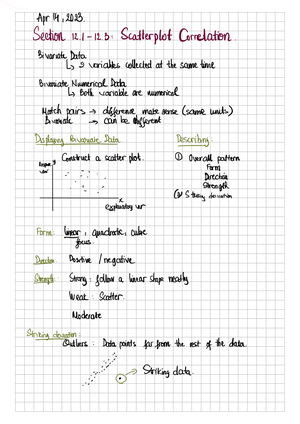 Apr 14, 2023.
Section 12.1 - 12.3: Scatterplot Correlation.
Bivariate Data
↳ 2 variables collected at the same time
Bivariate Numerical Data
↳ Both variable are numerical
Match pairs → difference make sense (same units)
Bivariate → can be different
Displaying Bivariate Data
Construct a scatter plot.
y
var
x
explanatory var
Describing:
① Overall pattern
Form
Direction
Strength
② Striking deviation
Form: linear, quadratic, cubic
focus.
Direction: Positive / negative
Strength: Strong: follow a linear shape neatly
Weak: Scatter.
Moderate
Striking deviation:
Outliers: Data points far from the rest of the data.
→ Striking data.